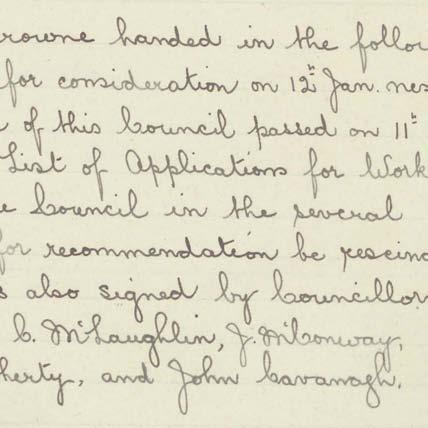 rowne handed in the follow
for consideration on 12th Jan. nex
of this Council passed on 11th
List of Applications for Work
e Council in the several
for recommendation be rescin
s also signed by Councillor
C. McLaughlin, J. McConway,
herty, and John Cavanagh.